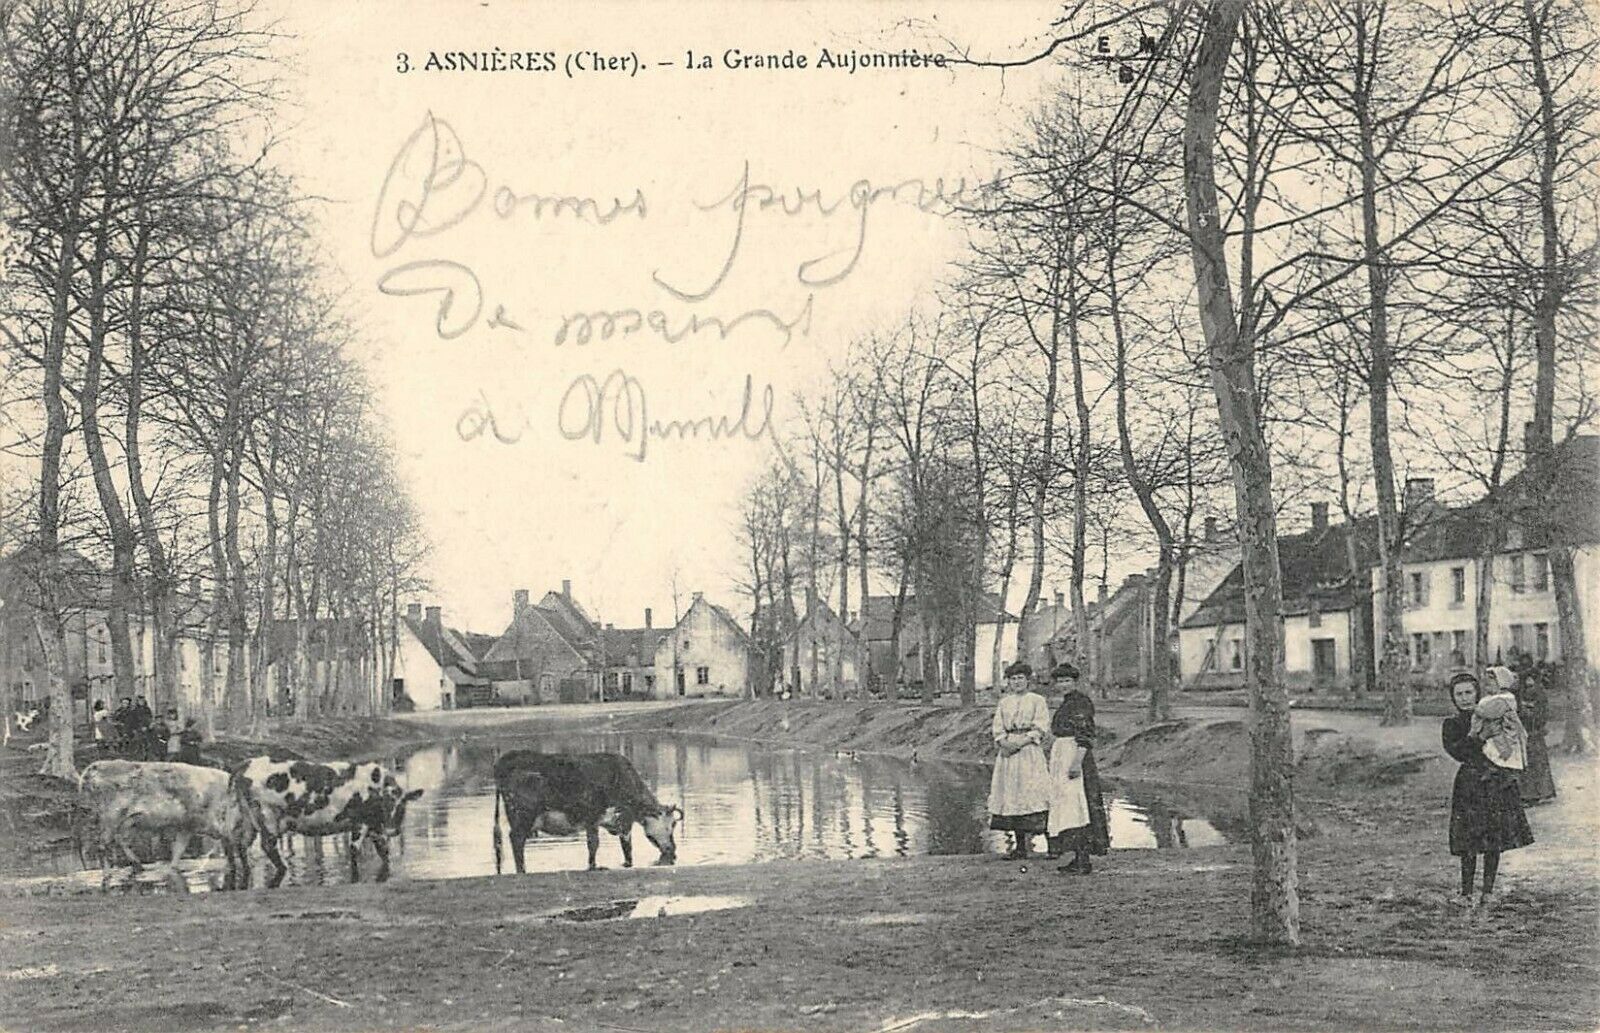 3. ASNIÈRES (Cher). – La Grande Aujonnière
E. M.
B
Bonnes poignees
De mains
à